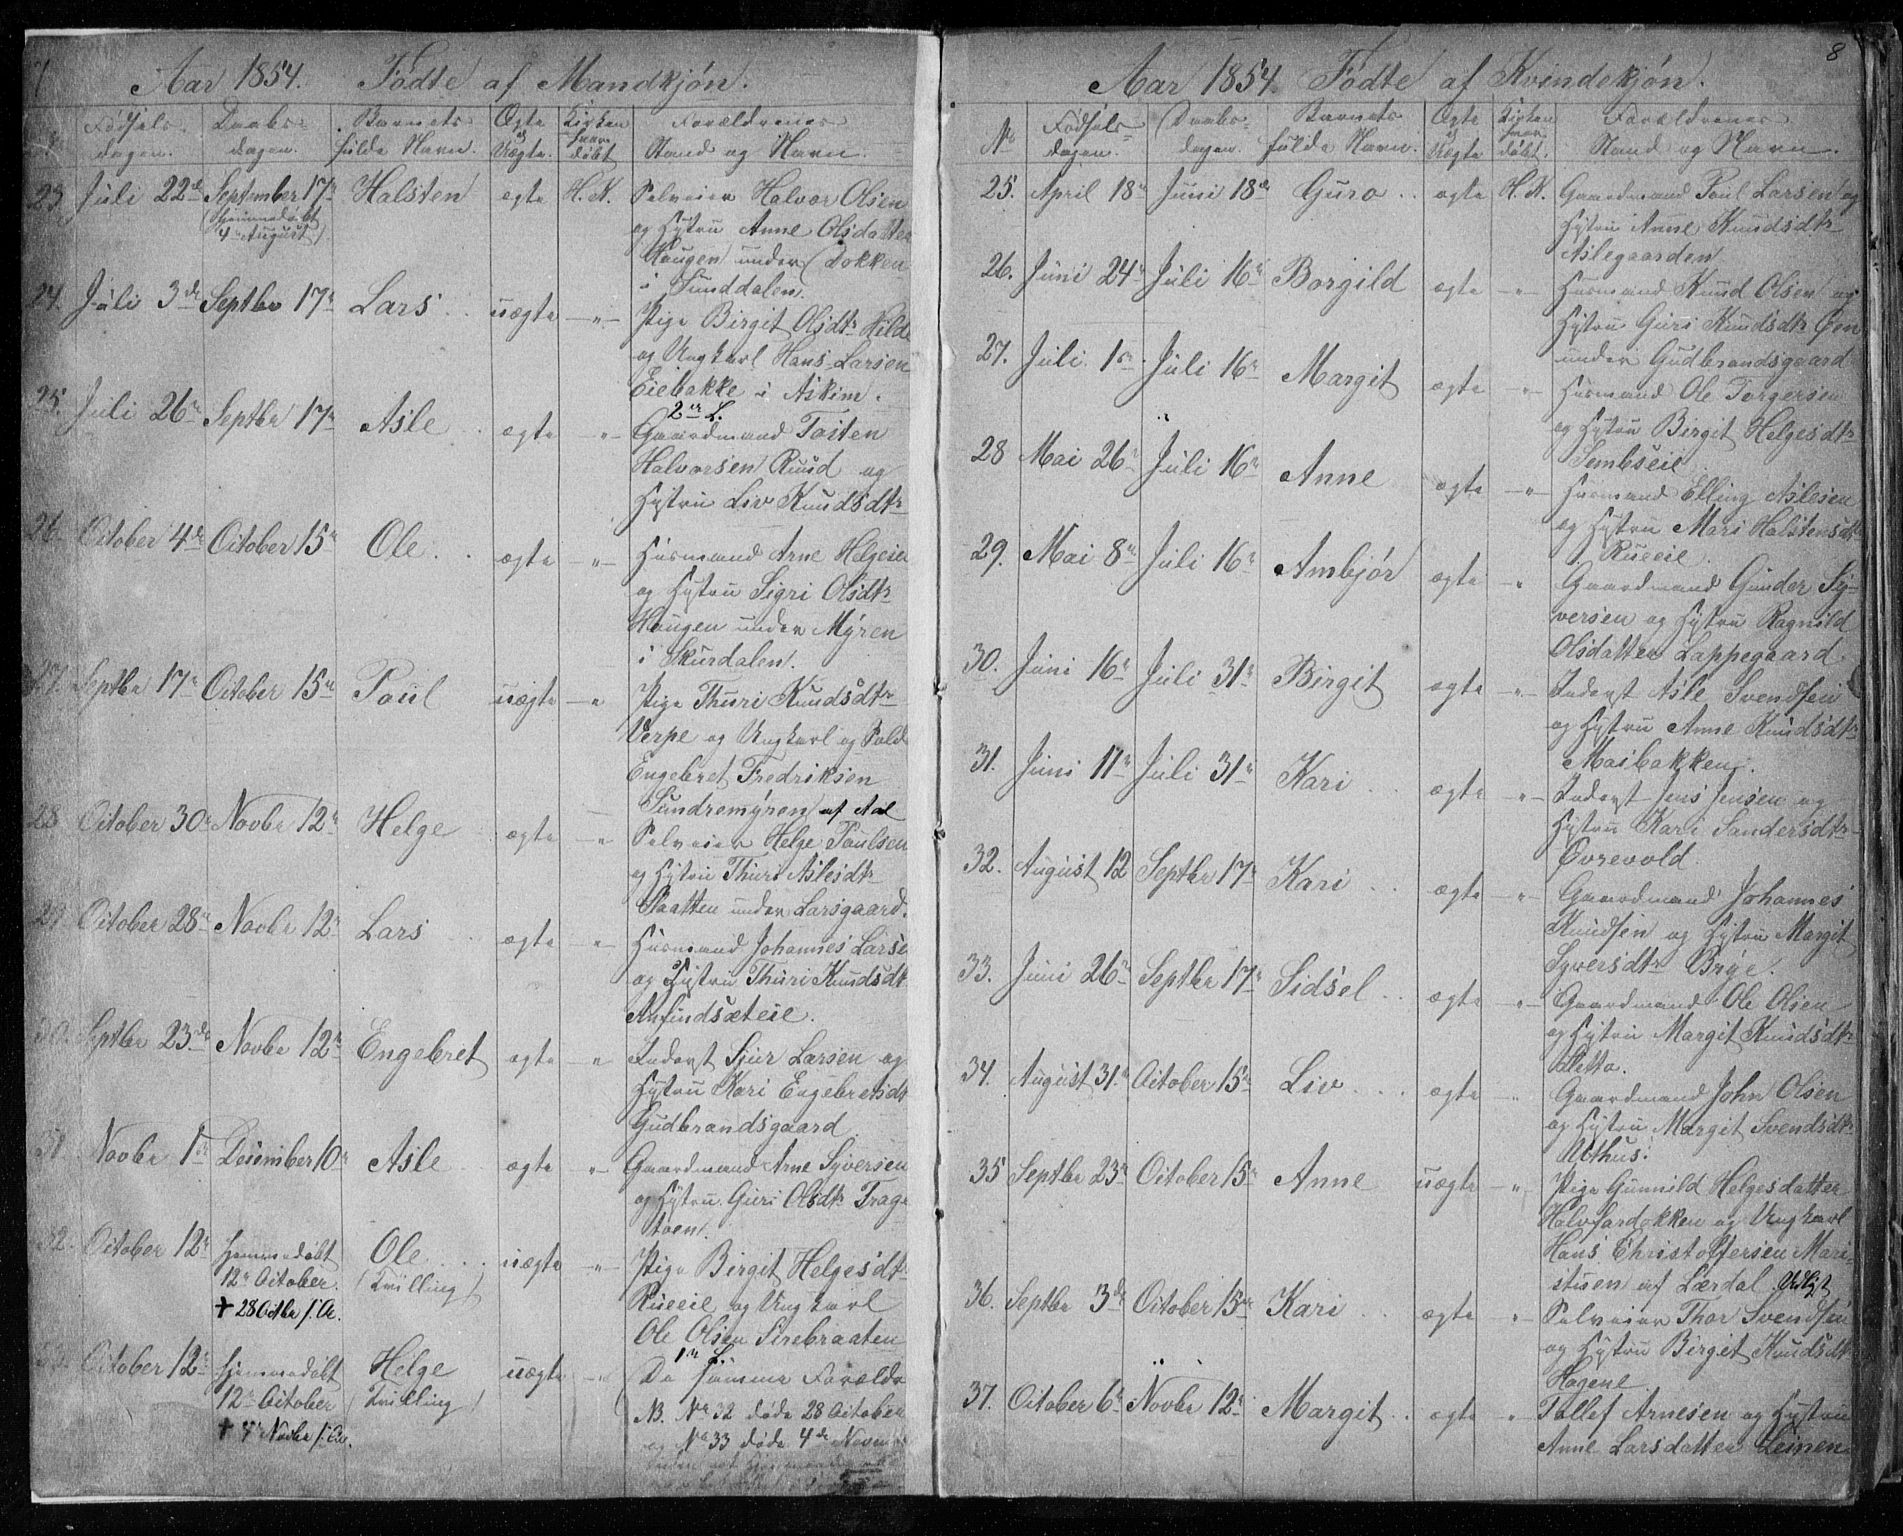 7
Aar 1854. Fødte af Mandkjøn.
Fødsels- Daabs- Barnets Ægte Kirken Forældrenes
dagen. dagen. fulde Navn. og Uægte. hjem-døbt Stand og Navn.
23. Juli 22de September 17de Halsten ægte H. K. Selveier Halvor Olsen
(Hjemmedøbt og Hustru Anne Olsdatter
4de August) Haugen under Dokken
i Sunddalen.
24. Juli 3de Septbr 17de Lars uægte -"- Pige Birgit Olsdtr Hilde
og Ungkarl Hans Larsen
Eiebakke i Askim.
2den L.
25. Juli 26de Septbr 17de Asle ægte -"- Gaardmand Tosten
Halvorsen Ruud og
Hustru Liv Knudsdtr
26. October 4de October 15de Ole ægte -"- Husmand Arne Helgesen
og Hustru Sigri Olsdtr
Haugen under Myren
i Skurdalen.
27. Septbr 17de October 15de Paul uægte -" Pige Thuri Knudsdtr
Verpe og Ungkarl og Sold
Engebret Fredriksen
Sundremyren af Aal
28 October 30te Novbr 12te Helge ægte -" Selveier Helge Paulsen
og Hustru Thuri Aslesdtr
Slaatten under Larsgaard.
29 October 28de Novbr 12te Lars ægte -" Husmand Johannes Larse
og Hustru Thuri Knudsdt
Anfindsæteie.
30. Septbr 23de Novbr 12te Engebret ægte -" Inderst Sjur Larsen og
Hustru Kari Engebretsdt
Gudbrandsgaard
31. Novbr 1ste Desember 10de Asle ægte -"- Gaardmand Arne Syversen
og Hustru Guri Olsdtr Trage
toen.
32. October 12te Hjemmedøbt Ole uægte -"- Pige Birgit Helgesdtr
12te October. (Tvilling) Rueeie og Ungkarl
+ 28 Octbr s. A. Ole Olsen Sirebraaten
1ste L.
33. October 12te Hjemmedøbt Helge uægte -"- De samme Forældre
12te October (Tvilling) NB. No 32 døde 28 October
+ 4de Novbr s. A. og No 33 døde 4de Novem
8
Aar 1854. Fødte af Kvindekjøn.
No Fødsels- Daabs- Barnets Ægte Kirken Forældrenes
dagen. dagen. fulde Navn. og Uægte hjem-døbt. Stand og Navn.
25. April 18de Juni 18de Guro ægte H. K. Gaardmand Paul Larsen og
Hustru Anne Knudsdtr
Aslegaarden
26. Juni 24de Juli 16de Borgild ægte -"- Husmand Knud Olsen og
Hustru Guri Knudsdtr Øen
under Gudbrandsgaard
27. Juli 1ste Juli 16de Margit ægte "- Husmand Ole Torgersen
og Hustru Birgit Helgesdtr
Sembseie
28 Mai 26de Juli 16de Anne ægte -"- Husmand Elling Aslesen
og Hustru Mari Halstensdtr
Rueeie
29. Mai 8de Juli 16de Ambjør ægte -" Gaardmand Gunder Sy-
versen og Hustru Ragnild
Olsdatter Lappegaard
30. Juni 16de Juli 31te Birgit ægte -"- Inderst Asle Svendsen
og Hustru Anne Knudsdtr
Maibakken.
31. Juni 11te Juli 31te Kari ægte -"- Inderst Jens Jensen og
Hustru Kari Sandersdtr
Øvrevold.
32. August 12 Septbr 17de Kari ægte -" Gaardmand Johannes
Knudsen og Hustru Margit
Syversdtr Brye.
33. Juni 26de Septbr 17de Sidsel ægte "- Gaardmand Ole Olsen
og Hustru Margit Knudsdtr
Sletto.
34. August 31te October 15de Liv ægte -"- Gaardmand John Olsen
og Hustru Margit Svendsdtr
Uthus.
35 Septbr 23de October 15de Anne uægte -" Pige Gunnild Helgesdatter
Halvfardokken og Ungkarl
Hans Christoffersen Mari-
stuen af Lærdal. Udligt
36. Septbr 3de October 15de Kari ægte -"- Selveier Thor Svendsen
og Hustru Birgit Knudsdt
Hagene
37. October 6te Novbr 12te Margit ægte -"- Tollef Arnesen og Hustru
Anne Larsdatter Leinen